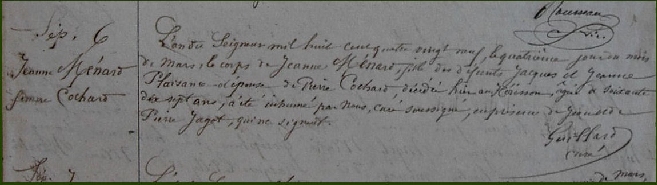 Rousseau
Vic.
Sép. 6
Jeanne Ménard
femme Cochard
L'an du Seigneur mil huit cent quatre vingt neuf, le quatrième jour du mois
de mars, le corps de Jeanne Ménard, fille des défunts Jacques et Jeanne
Plaisane épouse de Pierre Cochard décédé hier au agée de soixante
dix sept ans, a été inhumé par Nous, curé soussigné, en présence de et de
Pierre Jagot, qui ne signent.
Guillard
curé
Sép. 7
de mars,